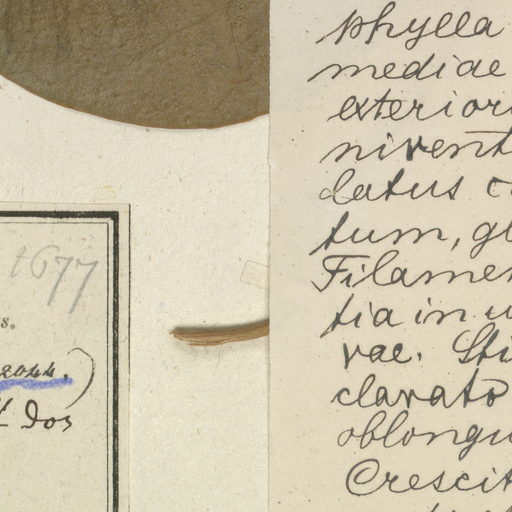 1677
s.
2044.)
dos
phylla
mediae
exterior
nivent
latus c
tum, gl
Filamen
tia in u
vae. Sti
clavato
oblongu
Crescit